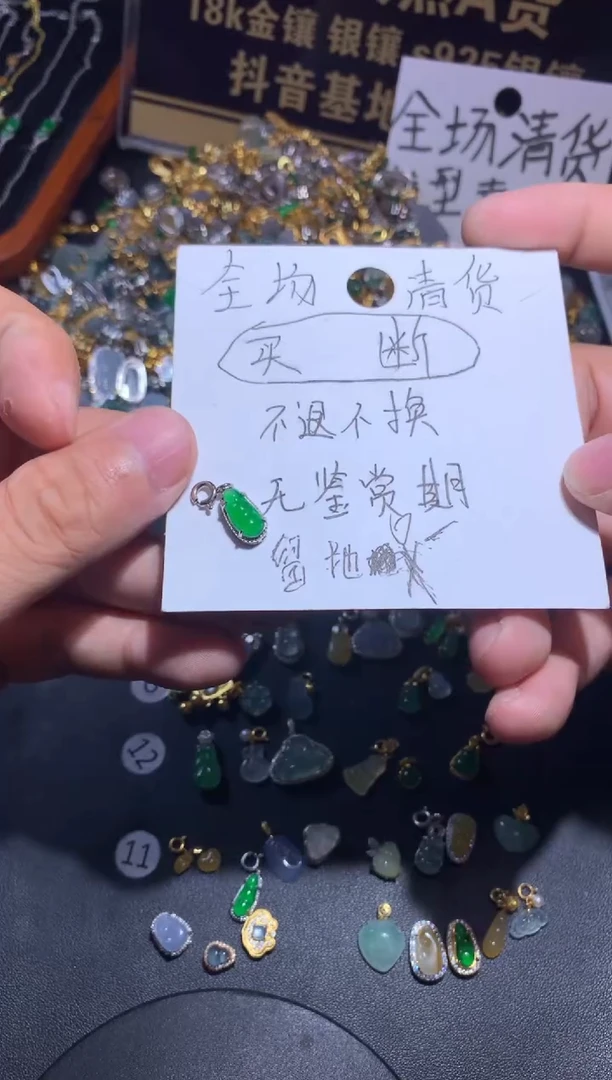 A货
18k金镶 银镶 s925银镶
抖音基地
全场清货
全场 清货
买 断
不退不换
无鉴赏期
留地
12
11